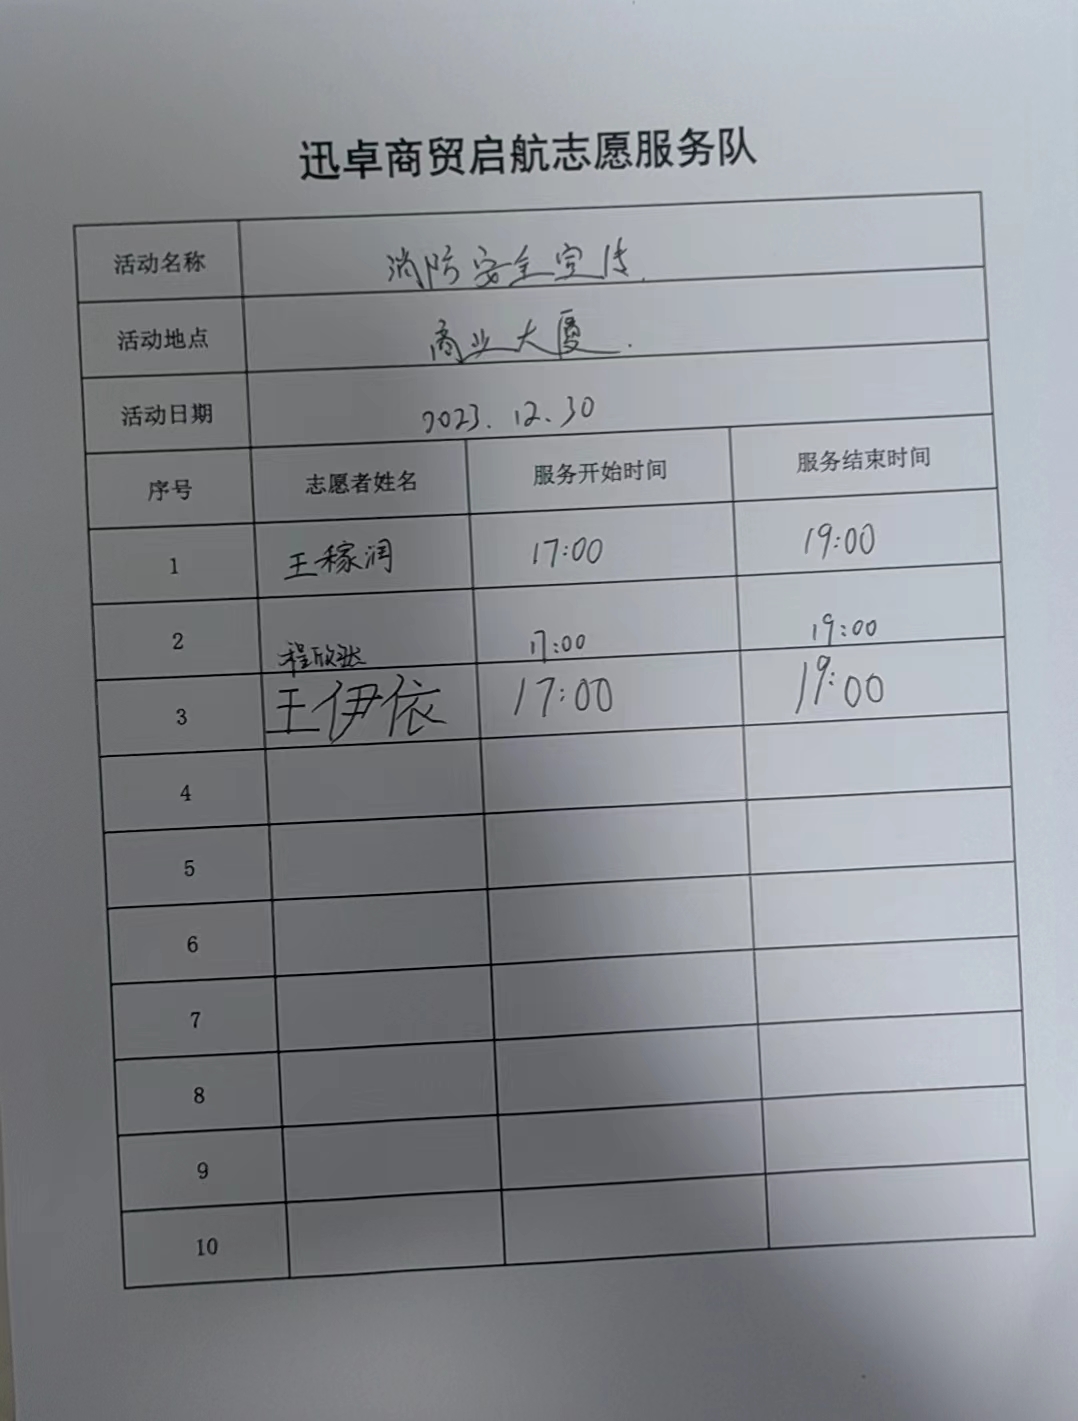 迅卓商贸启航志愿服务队
活动名称 消防安全宣传.
活动地点 商业大厦.
活动日期 2023.12.30
序号 志愿者姓名 服务开始时间 服务结束时间
1 王稼润 17:00 19:00
2 程欣然 17:00 19:00
3 王伊依 17:00 19:00
4
5
6
7
8
9
10